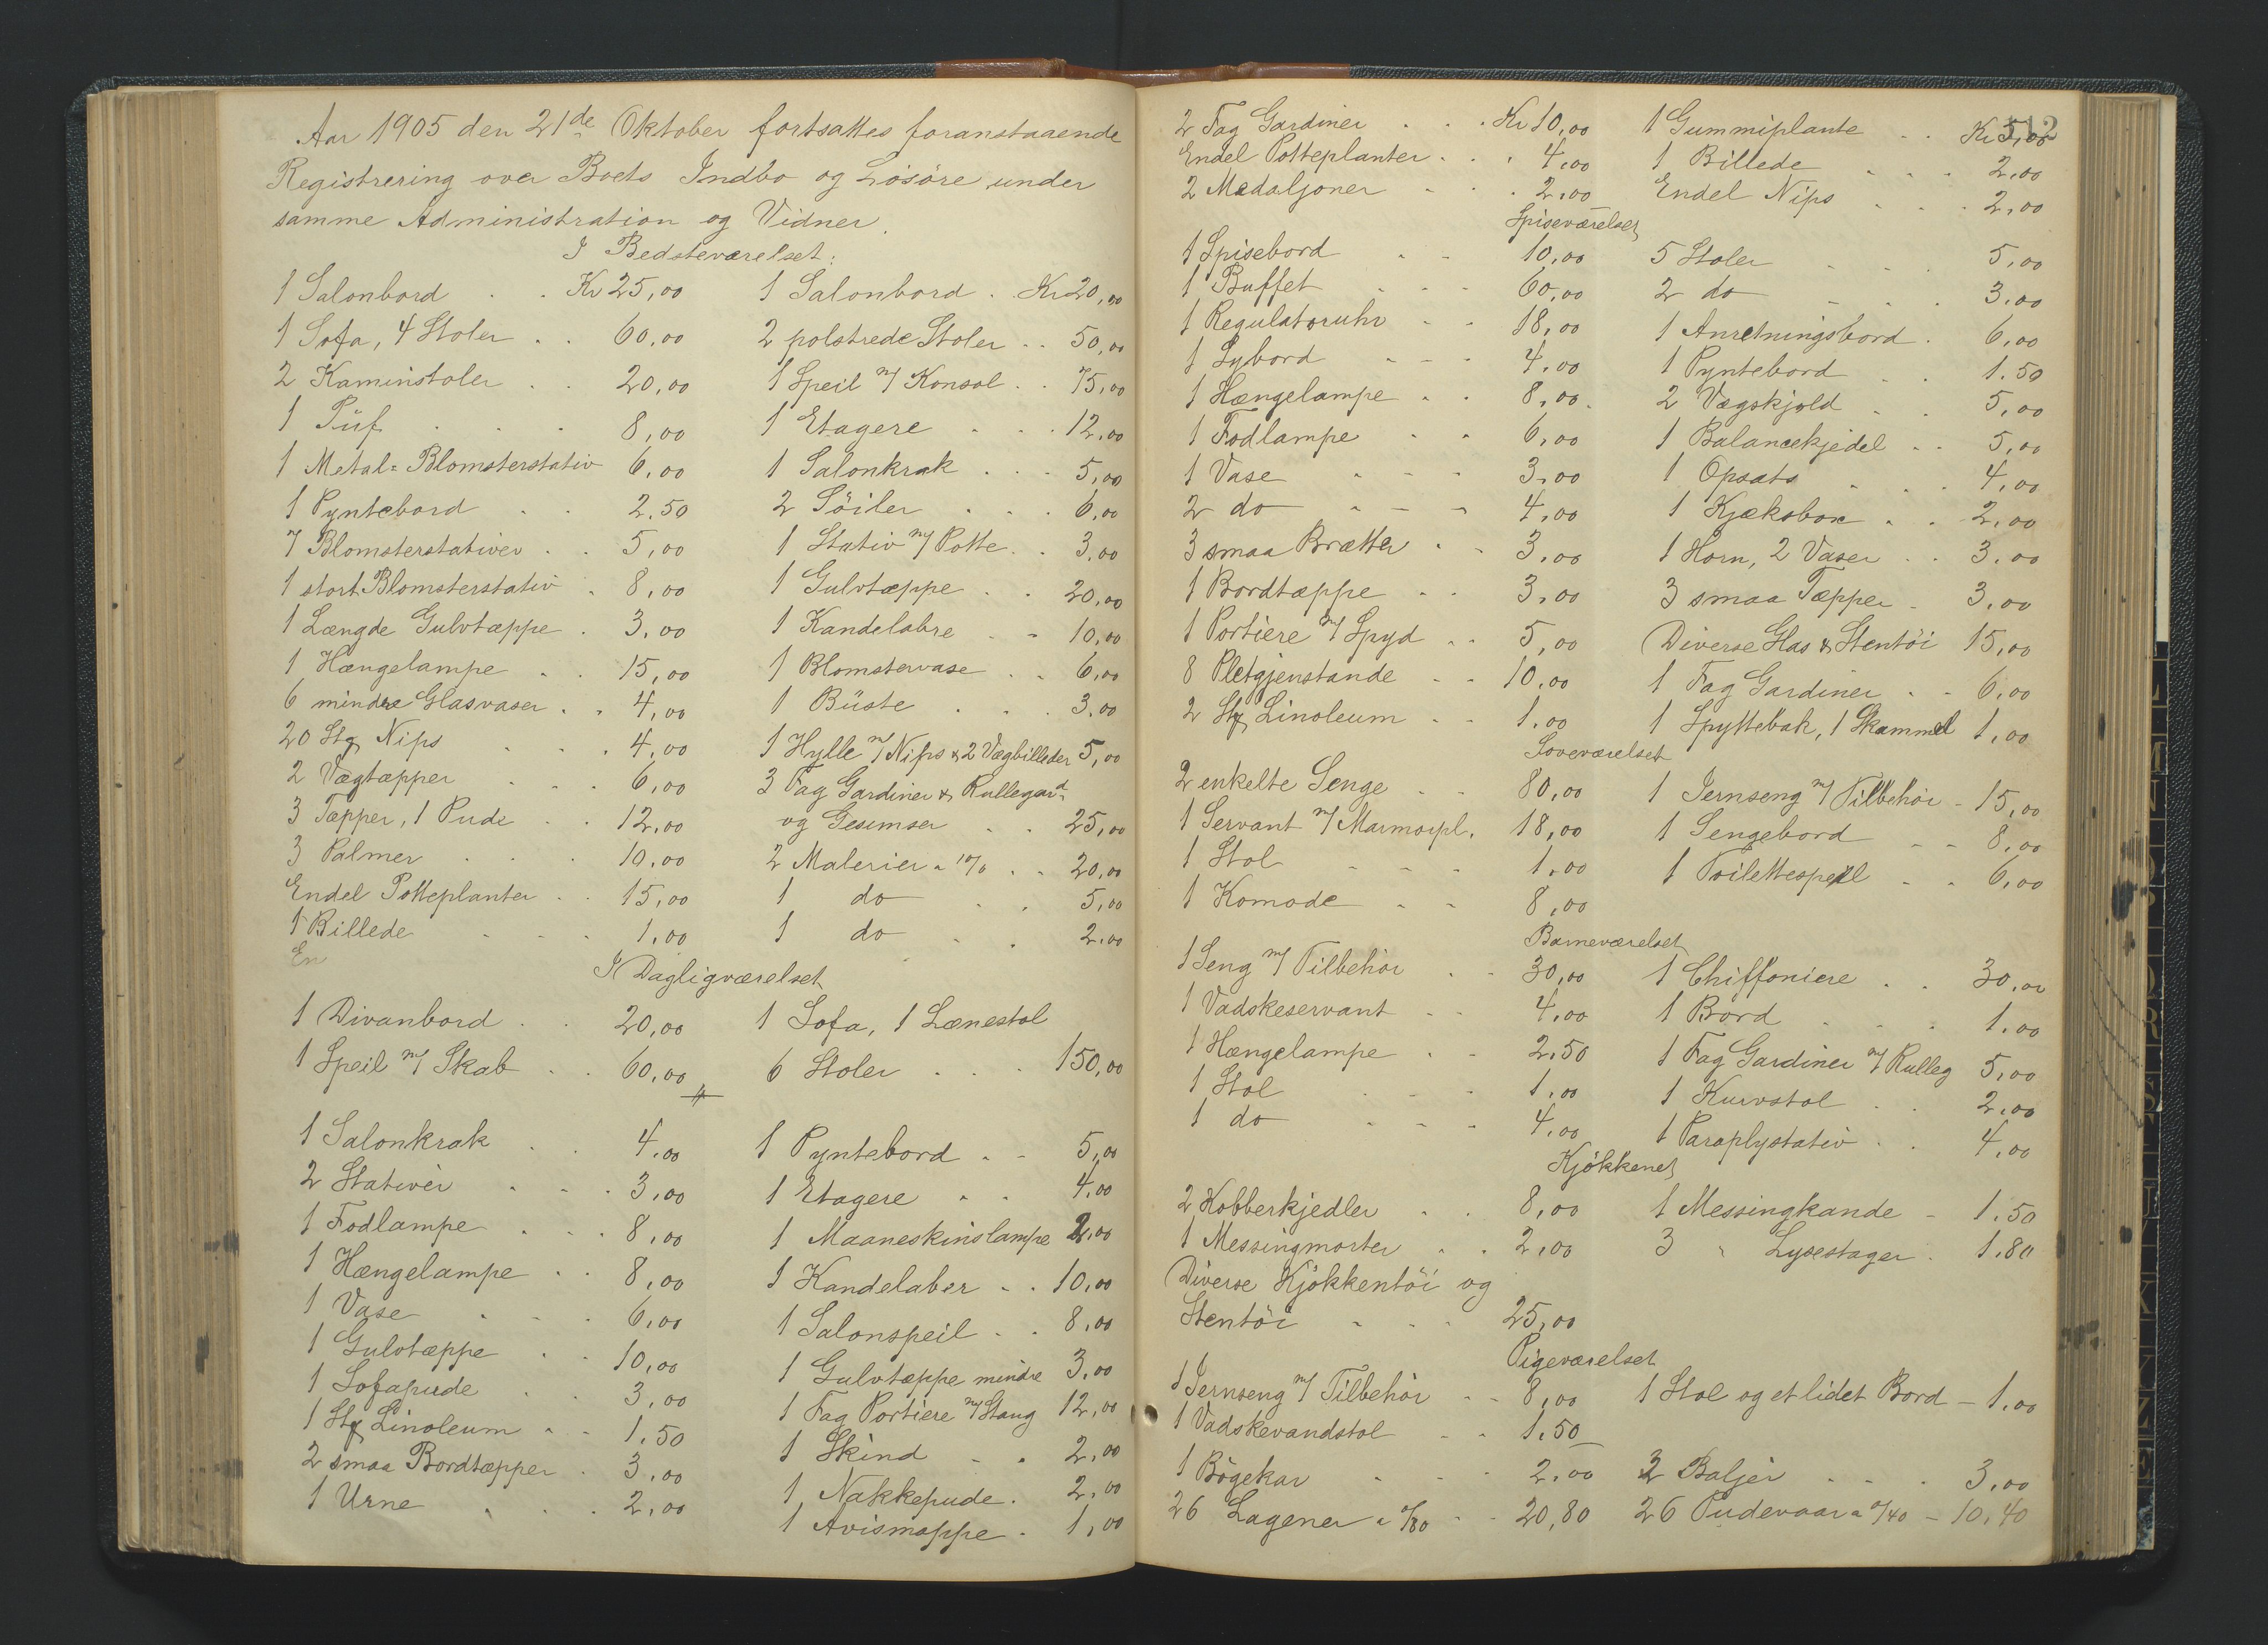 Aar 1905 den 21de Oktober fortsattes foranstaaende
Registrering over Boets Indbo og Løsøre under
samme Administration og Vidner.
I Bedsteværelset:
1 Salonbord . . Kr 25,00 1 Salonbord . Kr 20,00
1 Sofa, 4 Stoler . . 60,00 2 polstrede Stoler . . 50,00
2 Kaminstoler . . 20,00 1 Speil m/ Konsol . . 75,00
1 Püf . . . 8,00 1 Etagere . . . 12,00
1 Metal= Blomsterstativ 6,00 1 Salonkrak . . . 5,00
1 Pyntebord . . 2.50 2 Söiler . . . 6,00
7 Blomsterstativer . . 5,00 1 Stativ m/ Potte . . 3,00
1 stort Blomsterstativ . 8,00 1 Gulvtæppe . . 20,00
1 Længde Gulvtæppe . 3,00 1 Kandelabre . . 10,00
1 Hængelampe . . 15,00 1 Blomstervase . . 6,00
6 mindre Glasvaser . . 4,00 1 Büste . . . 3,00
20 Stg Nips . . . 4,00 1 Hylle m/ Nips & 2 Vægbilleder 5,00
2 Vægtæpper . . 6,00 3 Fag Gardiner & Rullegard
3 Tæpper, 1 Pude . . 12,00 og Gesimser . . 25,00
3 Palmer . . . 10,00 2 Malerier a 10/0 . . 20,00
Endel Potteplanter . . 15,00 1 do . . 5,00
1 Billede . . . 1,00 1 do . . 2.00
En
I Dagligværelset
1 Divanbord . . 20,00 1 Sofa, 1 Lænestol
1 Speil m/ Skab . . 60,00 6 Stoler . . . 150,00
1 Salonkrak . . 4.00 1 Pyntebord . . 5,00
2 Stativer . . . 3,00 1 Etagere . . 4,00
1 Fodlampe . . . 8,00 1 Maaneskinslampe 2,00
1 Hængelampe . . 8,00 1 Kandelaber . . 10,00
1 Vase . . . 6,00 1 Salonspeil . . 8,00
1 Gulvtæppe . . 10,00 1 Gulvtæppe mindre 3,00
1 Sofapude . . 3,00 1 Fag Portiere m/ Stang 12,00
1 Stg Linoleum . . 1.50 1 Skind . . 2,00
2 smaa Bordtæpper . 3,00 1 Nakkepude . 2,00
1 Urne . . . 2,00 1 Avismappe . 1,00
512
2 Fag Gardiner . . . Kr 10,00 1 Gummiplante . . Kr 5,00
Endel Potteplanter . . . 4,00 1 Billede . . . 2,00
2 Medaljoner . . . 2,00 Endel Nips . . . 2,00
Spiseværelset
1 Spisebord . . 10,00 5 Stoler . . . 5,00
1 Buffet . . . 60,00 2 do . . . 3.00
1 Regulatoruhr . . 18,00 1 Anretningsbord . 6,00
1 Sybord . . . 4,00 1 Pyntebord . . 1.50
1 Hængelampe . . 8,00 2 Vægskjold . . 5,00
1 Fodlampe . . 6,00 1 Balancekjedel . . 5,00
1 Vase . . . 3,00 1 Opsats . . . 4,00
2 do . . . 4,00 1 Kjæksboxe . . 2,00
3 smaa Brætter . . 3,00 1 Horn, 2 Vaser . . 3.00
1 Bordtæppe . . 3,00 3 smaa Tæpper . 3,00
1 Portiere m/ Spyd . . 5,00 Diverse Glas & Stentöi 15,00
8 Pletgjenstande . . 10,00 1 Fag Gardiner . . 6,00
2 Stg Linoleum . . 1.00 1 Spyttebak, 1 Skammel 1,00
Soveværelset
2 enkelte Senge . . 80,00 1 Jernseng m/ Tilbehör - 15,00
1 Servant m/ Marmorpl. 18,00 1 Sengebord . . 8,00
1 Stol . . . 1.00 1 Toilettespeil . . 6,00
1 Komode . . 8,00
Barneværelset
1 Seng m/ Tilbehör . . 30,00 1 Chiffoniere . . 30,00
1 Vadskeservant . . 4,00 1 Bord . . . 1.00
1 Hængelampe . . 2,50 1 Fag Gardiner m/ Rulleg 5,00
1 Stol . . . 1,00 1 Kurvstol . . 2,00
1 do . . . 4,00 1 Paraplystativ . . 4,00
Kjökkenet
2 Kobberkjedler . . 8,00 1 Messingkande - 1.50
1 Messingmorter . . 2,00 3 " Lysestager . 1.80
Diverse Kjökkentöi og
Stentöi . . . 25,00
Pigeværelset
1 Jernseng m/ Tilbehör . . 8,00 1 Stol og et lidet Bord - 1.00
1 Vadskevandstol . . 1.50
1 Bögekar . . . 2,00 2 Baljer . . . 3,00
26 Lagener a 0/80 . . 20,80 26 Pudevaar a 0/40 - 10,40